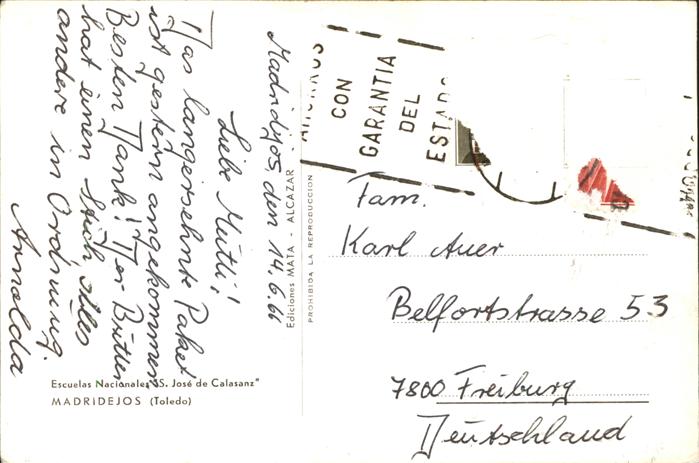 Madridejos, den 14.6.66
Liebe Mutti!
Das langersehnte Paket
ist gestern angekommen
Besten Dank! Der Butter
hat einen Stich, Alles
andere in Ordnung.
Arnolda
Escuelas Nacionales "S. José de Calasanz"
MADRIDEJOS (Toledo)
Ediciones MATA - ALCAZAR
PROHIBIDA LA REPRODUCCION
AHORROS
CON
GARANTIA
DEL
ESTADO
Fam.
Karl Auer
Belfortstrasse 53
7800 Freiburg
Deutschland